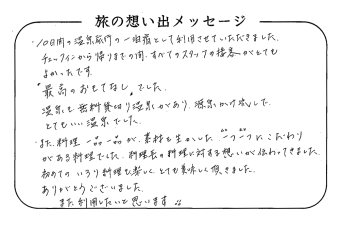 旅の想い出メッセージ
・10日間の温泉旅行の一泊宿として利用させていただきました。
チェックインから帰りまでの間、すべてのスタッフの接客がとても
よかったです。
"最高のおもてなし"でした。
温泉も無料貸切り温泉があり、源泉かけ流しで、
とてもいい温泉でした。
・また、料理一品一品が、素材を生かした、一つ一つにこだわり
がある料理でした。料理長の料理に対する想いが伝わってきました。
初めてのいろり料理も楽しくとても美味しく頂きました。
ありがとうございました。
また利用したいと思います。